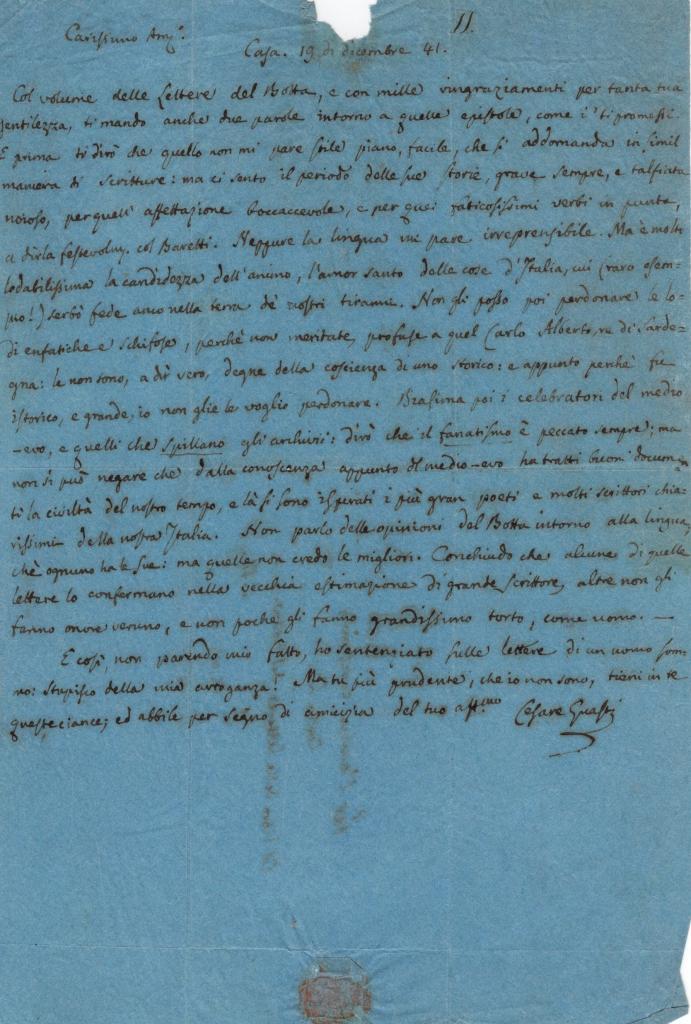 11.
Carissimo Amº.
Casa. 19 di dicembre 41.
Col volume delle Lettere del Botta, e con mille ringraziamenti per tanta tua
gentilezza, ti mando anche due parole intorno a quelle epistole, come i' ti promessi.
E prima ti dirò che quello non mi pare stile piano, facile, che si addomanda in simil
maniera di scritture: ma ci sento il periodo delle sue storie, grave sempre, e talfiata
noioso, per quell' affettazione boccaccevole, e per quei faticosissimi verbi in punta,
a dirla festevolm. col Baretti. Neppure la lingua mi pare irreprensibile. Ma è molto
lodabilissima la candidezza dell'animo, l'amor santo delle cose d'Italia, cui (raro esem-
pio!) serbò fede anco nella terra de' nostri tiranni. Non gli posso poi perdonare le lo-
di enfatiche e schifose, perchè non meritate, profuse a quel Carlo Alberto, re di Sarde-
gna: le non sono, a dir vero, degne della coscienza di uno storico: e appunto perchè fu
istorico, e grande, io non glie le voglio perdonare. Biasima poi i celebratori del medio
-evo, e quelli che spillano gli archivii: dirò che il fanatismo è peccato sempre; ma
non si può negare che dalla conoscenza appunto del medio-evo ha tratti buoni documen
ti la civiltà del nostro tempo, e là si sono ispirati i più gran poeti e molti scrittori chia-
rissimi della nostra Italia. Non parlo delle opinioni del Botta intorno alla lingua,
chè ognuno ha le sue: ma quelle non credo le migliori. Conchiudo che alcune di quelle
lettere lo confermano nella vecchia estimazione di grande scrittore, altre non gli
fenno onore veruno, e non poche gli fanno grandissimo torto, come uomo. —
E così, non parendo mio fatto, ho sentenziato sulle lettere di un uomo som-
mo: stupisco della mia arroganza! Ma tu più prudente, che io non sono, tieni in te
queste ciance; ed abbile per segno di amicizia del tuo aff.mo Cesare Guasti